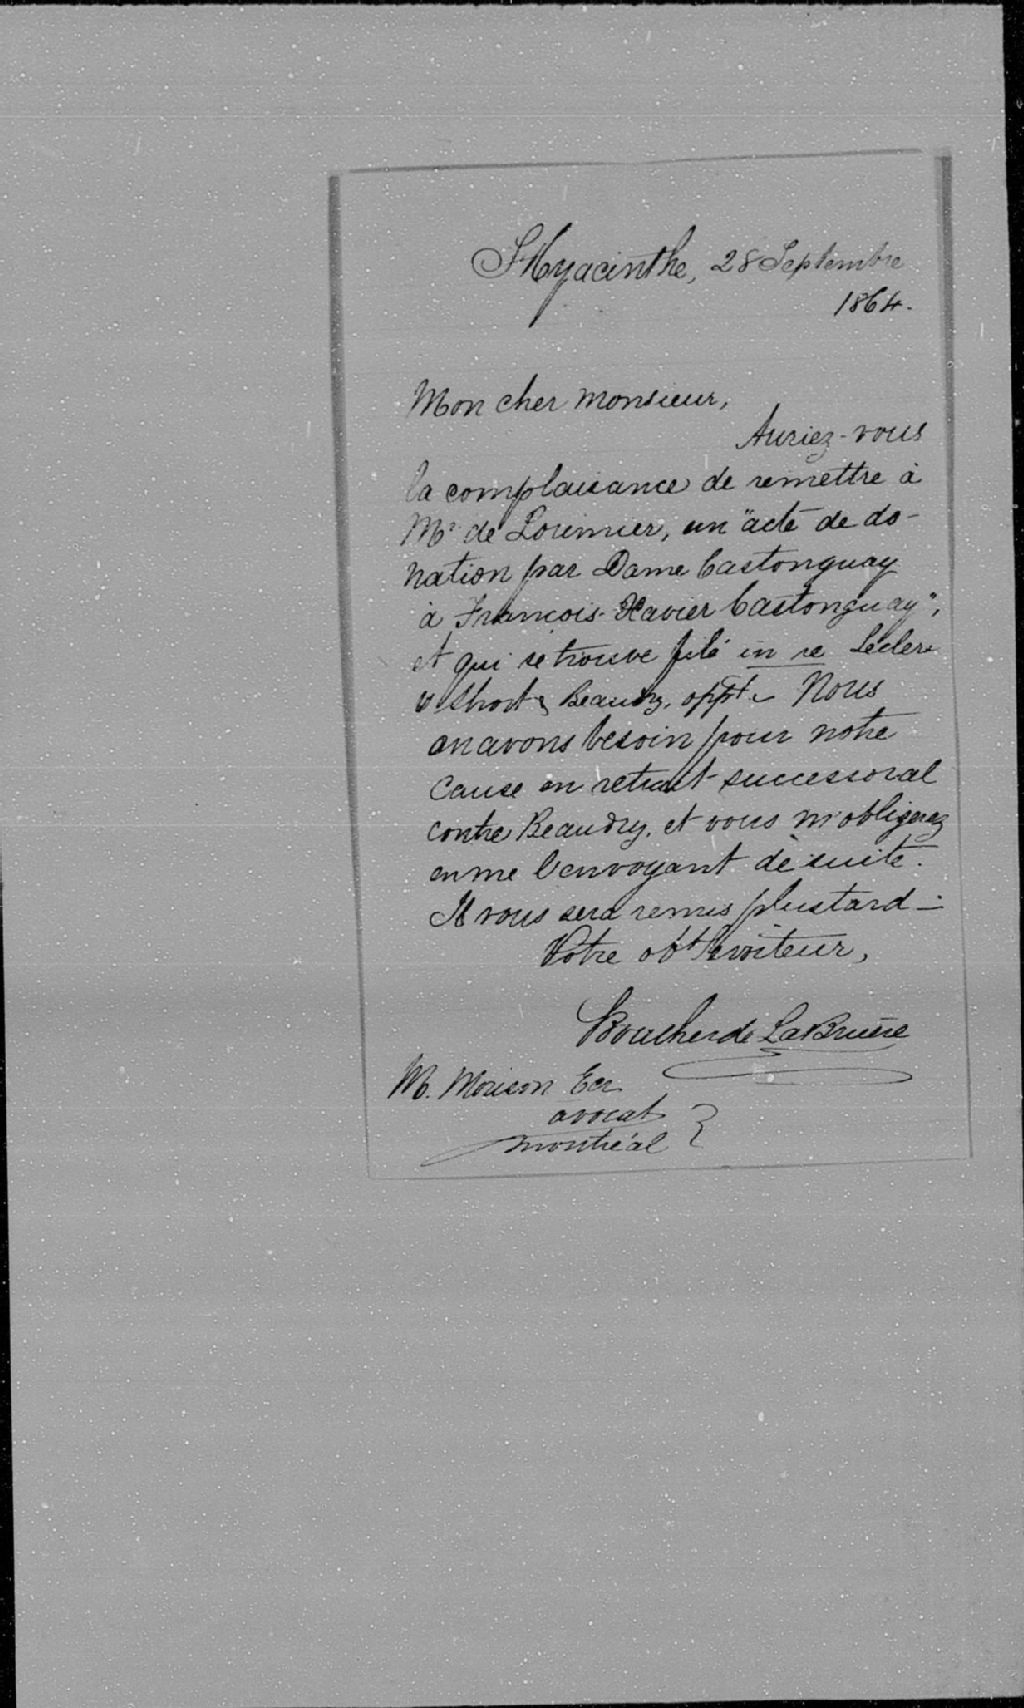 St Hyacinthe, 28 Septembre
1864.
Mon cher monsieur,
Auriez-vous
la complaisance de remettre à
Mr de Lorimier, un "acte de do-
nation par Dame Castonguay
à François-Xavier Castonguay",
et qui se trouve filé in re Leclere
v Short & Beaudry, oppt. Nous
en avons besoin pour notre
cause en retrait successoral
contre Beaudry, et vous m'obligerez
en me l'envoyant de suite.
Il vous sera remis plustard -
Votre obt Serviteur,
Boucher de LaBruère
M. Morison Ecr
avocat
Montréal